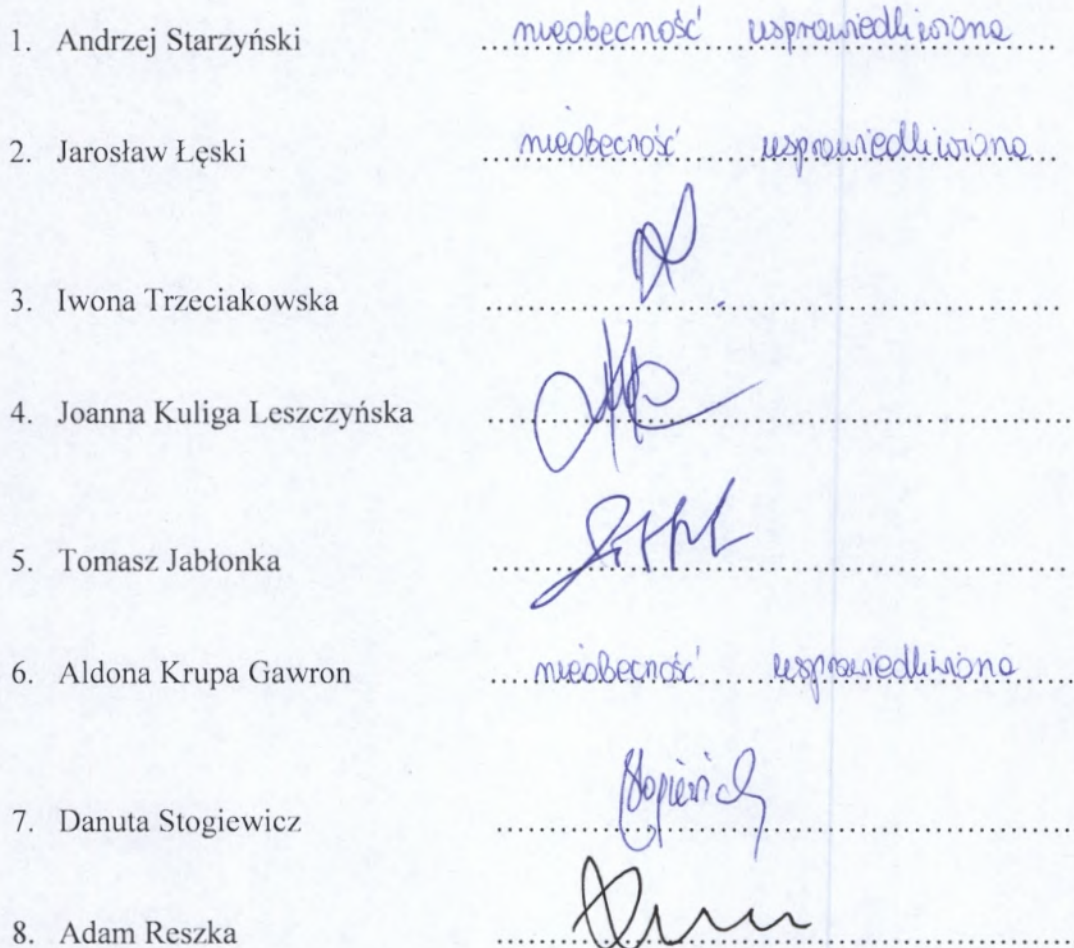 1. Andrzej Starzyński ....nieobecność....usprawiedliwiona....
2. Jarosław Łęski ....nieobecność....usprawiedliwiona....
3. Iwona Trzeciakowska ....................
4. Joanna Kuliga Leszczyńska ....................
5. Tomasz Jabłonka ....................
6. Aldona Krupa Gawron ....nieobecność....usprawiedliwiona....
7. Danuta Stogiewicz ....................
8. Adam Reszka ....................